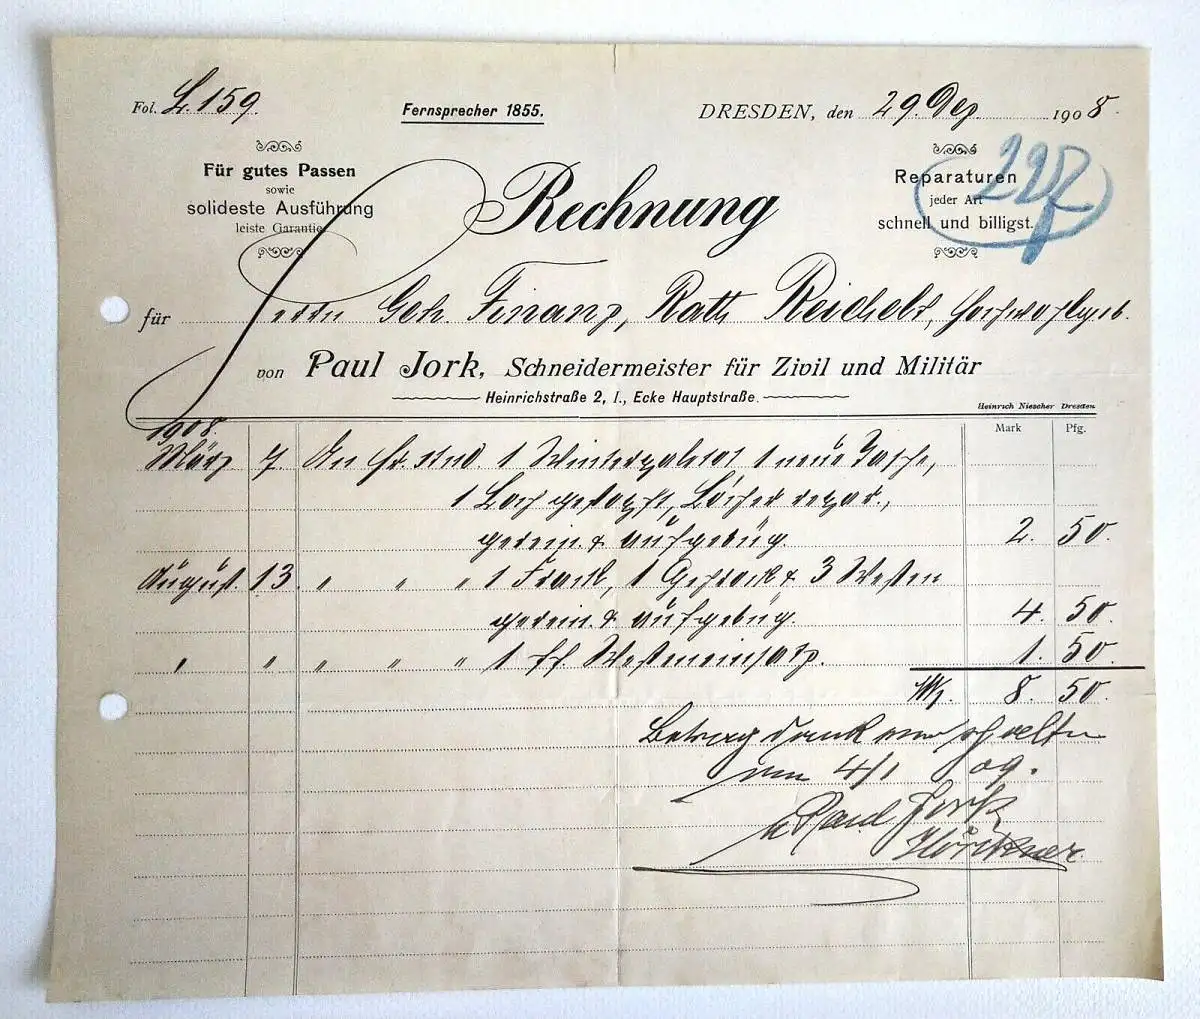 Fol. L. 159.
Fernsprecher 1855.
DRESDEN, den 29. Dez. 1908.
Für gutes Passen
sowie
solideste Ausführung
leiste Garantie.
Rechnung
Reparaturen
jeder Art
schnell und billigst.
für Herrn Geh. Finanz, Rath Reichelt,
von Paul Jork, Schneidermeister für Zivil und Militär
Heinrichstraße 2, I., Ecke Hauptstraße.
Heinrich Niescher Dresden
Mark Pfg.
1908.
März 7. An 1 Winterpaletot 1 neue Tasche,
1 Loch gestopft, Löcher repar.,
gerein. & aufgebüg. 2. 50.
August. 13. " " " 1 Frack, 1 Gehrock & 3 Westen
gerein. & aufgebüg. 4. 50.
" " " " " 1 Westeneinsatz. 1. 50.
M. 8. 50.
Betrag dankend erhalten
am 4/1 09.
Paul Jork